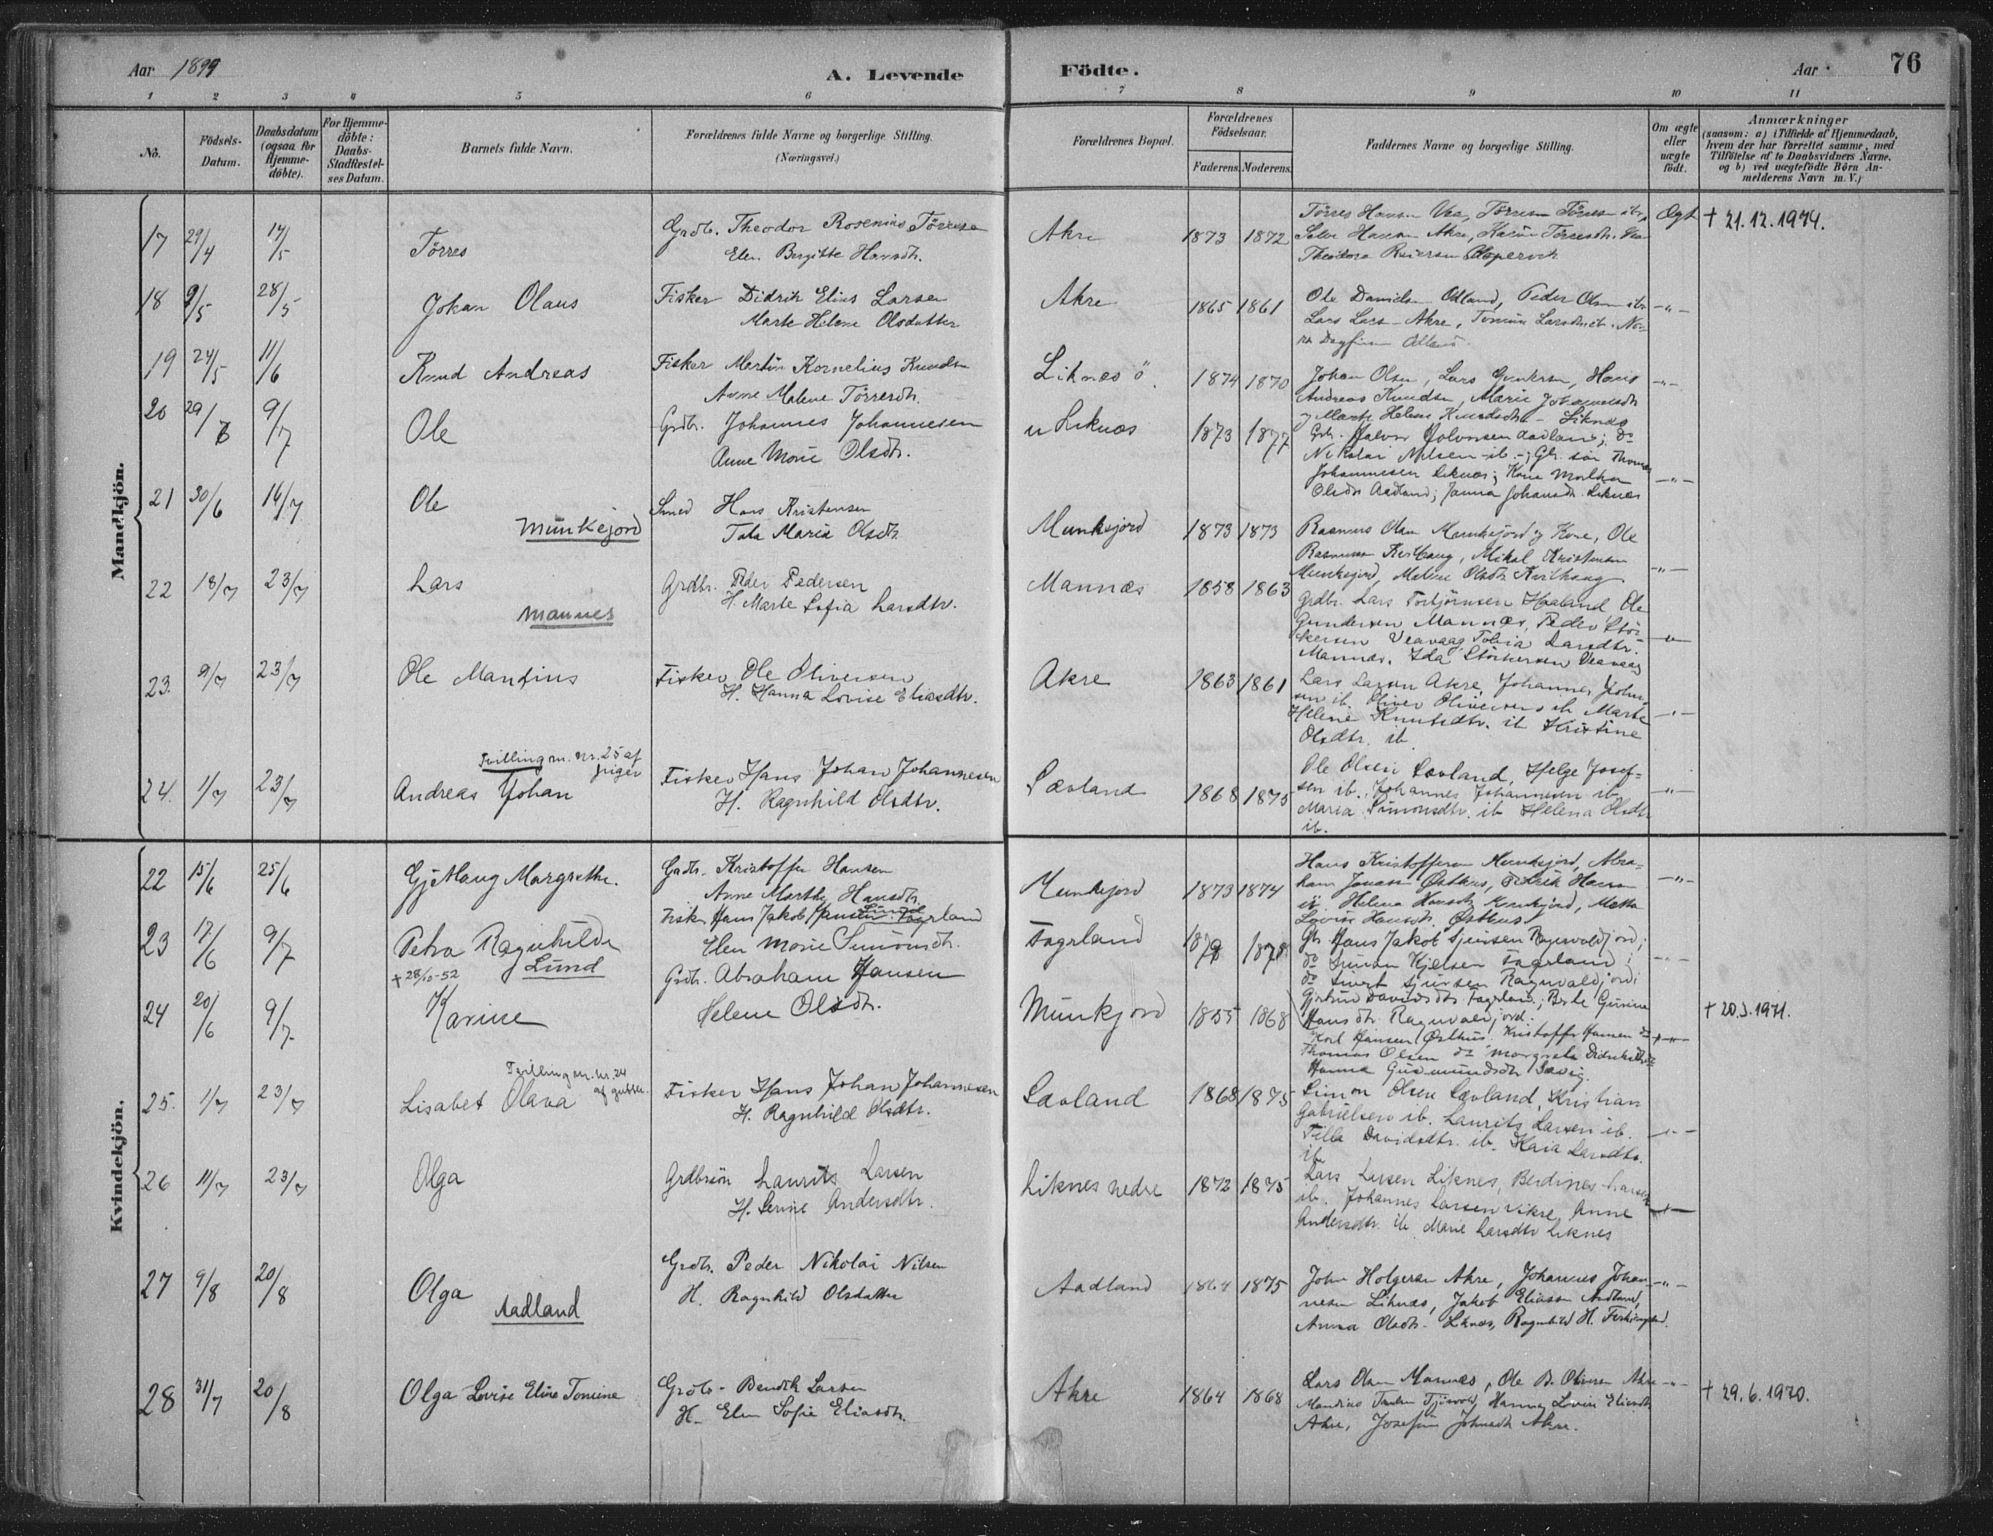 Aar 1899
A. Levende Födte.
Aar
76
1 2 3 4 5 6 7 8 9 10 11
No.
Födsels-Datum.
Daabsdatum (ogsaa for Hjemme-döbte).
For Hjemme-döbte: Daabs-Stadfæstel-ses Datum.
Barnets fulde Navn.
Forældrenes fulde Navne og borgerlige Stilling. (Næringsvei.)
Forældrenes Bopæl.
Forældrenes Födselsaar.
Faderens. Moderens.
Faddernes Navne og borgerlige Stilling.
Om ægte eller uægte födt.
Anmærkninger
(saasom: a) i Tilfælde af Hjemmedaab, hvem der har forrettet samme, med Tilföielse af to Daabsvidners Navne, og b) ved uægtefödte Børn An-melderens Navn m. V.)
Mandkjön.
17 29/4 14/5 Törres
Grdbr. Theodor Rosenius Törresen
Elen Bergitte Hansdtr.
Akre 1873 1872
Törres Hansen Vea, Törres Törresen ib,
Hansen Akre, Törresdtr.
Theodora
Ægt
† 21.12.1974.
18 9/5 28/5 Johan Olaus
Fisker Didrik Elias Larsen
Marte Helene Olsdatter
Akre 1865 1861
Ole Davidsen Odland, Peder Olsen ib
Lars Lars- Akre,
-"-
19 24/5 11/6 Knud Andreas
Fisker Martin Kornelius Knudsen
Anne Malene Törresdtr.
Liknes ö. 1874 1870
Johan Olsen, Lars Gunlersen, Hans
Andreas Knudsen, Marie Johannesdtr
Marte Helene Knudsdtr - Liknes
-"-
20 29/6 9/7 Ole
Grdbr. Johannes Johannesen
Anne Marie Olsdtr.
n Liknæs 1873 1877
Halvor Halvorsen Aadland; do
Nikolai Nilsen ib.
Johannesen Liknæs; Kone
Olsdtr Aadland; Janna Johansdtr. Liknæs
-"-
21 30/6 16/7 Ole
Munkejord
Smed Hans Kristensen
Tala Marie Olsdtr
Munkejord 1873 1873
Rasmus Olsen Munkejord og Kone, Ole
Rasmussen Kvilhaug, Mikal Kristensen
Munkejord, Malene Olsdtr. Kvilhaug
-"-
22 18/7 23/7 Lars
Mannes
Grdbr. Peder Pedersen
H. Marte Sofia Larsdtr.
Mannæs 1858 1863
Grdbr. Lars Torbjörnsen Haaland Ole
Gundersen Mannæs, Peder Stör-
kersen Veavaag Larsdtr.
Mannæs. Ida Störkersen Veavaag
-"-
23. 9/7 23/7 Ole Mandius
Fisker Ole Oliversen
H. Hanna Lovise Eliasdtr.
Akre 1863 1861
Lars Larsen Akre, Johannes Johan-
sen ib. Oliver Oliversen ib Marte
Helene Knutsdtr. ib Kristine
Olsdtr. ib.
-"-
24. 1/7 23/7 Tvilling m. Nr. 25 af piger
Andreas Johan
Fisker Hans Johan Johannesen
H. Ragnhild Olsdtr.
Sævland 1868 1875
Ole Olsen Sævland, Helge Josef-
sen ib. Johannes Johannesen ib
Maria Simonsdtr. ib Helena Olsdtr
ib.
-"-
Kvindekjön.
22 15/6 25/6 Gjetlaug Margrethe.
Grdbr. Kristoffer Hansen
Anne Marthe Hansdtr.
Munkejord 1873 1874
Hans Kristoffersen Munkejord, Abra-
ham Jonassen Østhus, Didrik Hansen
ib Helena Hansdtr Munkejord, Metta
Lovise Hansdtr. Østhus.
-"-
23 17/6 9/7 Petra Ragnhilda
† 28/10-52 Lund
Fisker Hans Jakob Hansen Fagerland
Elen Marie Simonsdtr.
Fagrland 1878 1878
Hans Jakob Sjursen Ragnvaldjord;
do Simon Kjelsen Fagerland;
do Sivert Sjursen Ragnvaldjord;
Davidsdtr. Fagerland; Berte Gurine
Hansdtr. Ragnvaldjord.
-"-
24 20/6 9/7 Karine
Grdbr. Abraham Hansen
Helene Olsdtr.
Munkjord 1855 1868
Karl Hansen Østhus. Kristoffer Hansen do
Thomas Olsen do Margreta Didriksdtr
Hanna Gudmundsdtr Sævig.
-"-
† 20.3.1971.
25. 1/7 23/7 Tvilling m. Nr. 24 af gutter.
Lisabet Olava
Fisker Hans Johan Johannesen
H. Ragnhild Olsdtr.
Sævland 1868 1875
Simon Olsen Sævland, Kristian
Gabrielsen ib. Laurits Larsen ib.
Tilla Davidsdtr. ib. Kaia Larsdtr.
ib.
-"-
26 11/7 23/7 Olga
Grdbrsön Laurits Larsen
H. Serine Andersdtr.
Liknes nedre 1872 1875
Lars Larsen Liknes, Berdines Larsen
ib. Johannes Larsen Vikre, Anne
Andersdtr. ib Marie Larsdtr Liknes
-"-
27 9/8 20/8 Olga
Aadland
Grdbr. Peder Nikolai Nilsen
H. Ragnhild Olsdatter
Aadland 1864 1875
John Holgersen Akre, Johannes Johan-
nesen Liknæs, Jakob Eliassen Aadland,
Anna Olsdtr. Liknes, Ragnhild H.
-"-
28 31/7 20/8 Olga Lovise Eline Tomine
Grdbr- Bendik Larsen
H. Elen Sofie Eliasdtr.
Akre 1864 1868
Lars Olsen Mannæs, Ole B. Olsen Akre
Mandius Hanna Lovise Eliasdtr
Akre, Josefine Johnsdtr Akre.
-"-
† 29.6.1920.